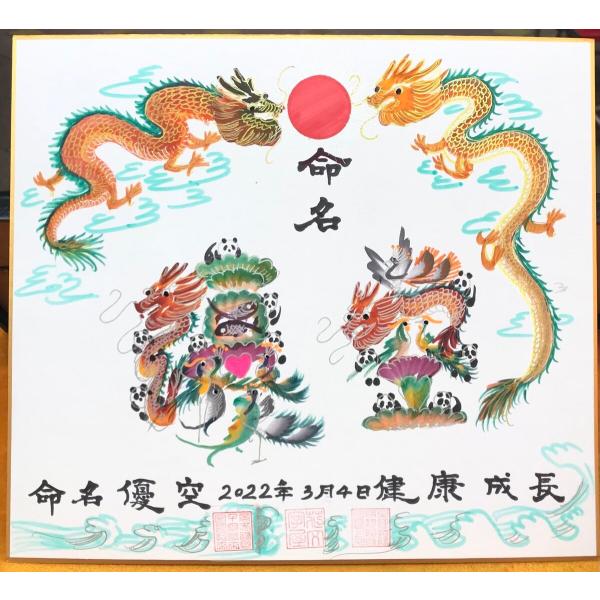 命名
優空
命名優空2022年3月4日健康成長